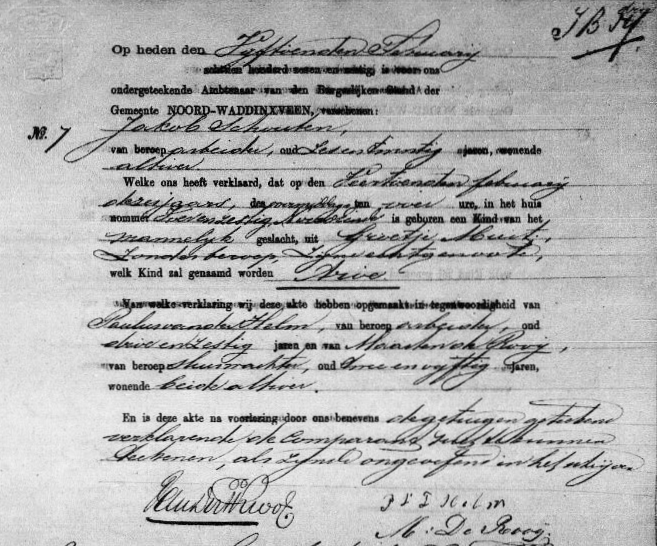 Op heden den Vyftienden February
achttien honderd zeven en zestig, is voor ons
ondergeteekende Ambtenaar van den Burgerlijken Stand der
Gemeente NOORD-WADDINXVEEN, verschenen:
No. 7
Jakob Schouten,
van beroep arbeider, oud Zes en Twintig jaren, wonende
alhier
Welke ons heeft verklaard, dat op den Veertienden february
dezes jaars, des voormiddags ten vier ure, in het huis
nommer is geboren een Kind van het
mannelyk geslacht, uit Grietje
Zonder beroep, Zyne echtgenoote,
welk Kind zal genaamd worden Arie
Van welke verklaring wij deze akte hebben opgemaakt in tegenwoordigheid van
Paulus van der Helm, van beroep arbeider, oud
drie en Zestig jaren en van Maarten de Rooij,
van beroep oud en vyftig jaren,
wonende beide alhier.
En is deze akte na voorlezing door ons benevens de getuigen geteekend
verklarende de Comparant niet te kunnen
teekenen, als Zynde ongeoefend in het schryven
P V D Helm
M: De Rooij